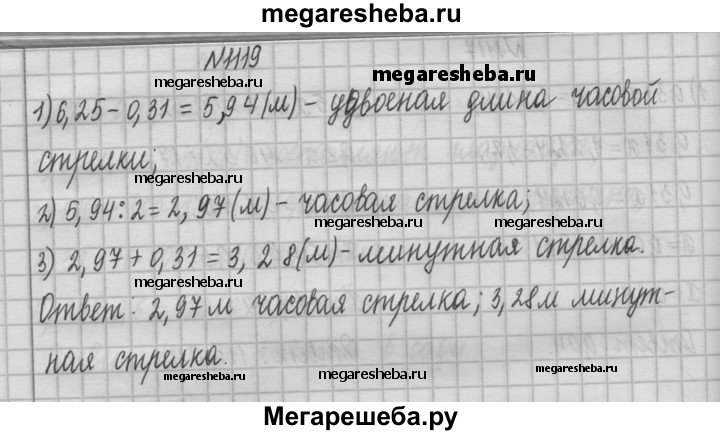 megaresheba.ru
N1119
megaresheba.ru
megaresheba.ru
1) 6,25 - 0,31 = 5,94 (м) - удвоеная длина часовой
стрелки;
megaresheba.ru
megaresheba.ru
2) 5,94 : 2 = 2,97 (м) - часовая стрелка;
megaresheba.ru
megaresheba.ru
3) 2,97 + 0,31 = 3,28 (м) - минутная стрелка.
megaresheba.ru
megaresheba.ru
Ответ: 2,97 м часовая стрелка; 3,28 м минут-
megaresheba.ru
megaresheba.ru
ная стрелка.
megaresheba.ru
megaresheba.ru
Мегарешеба.ру